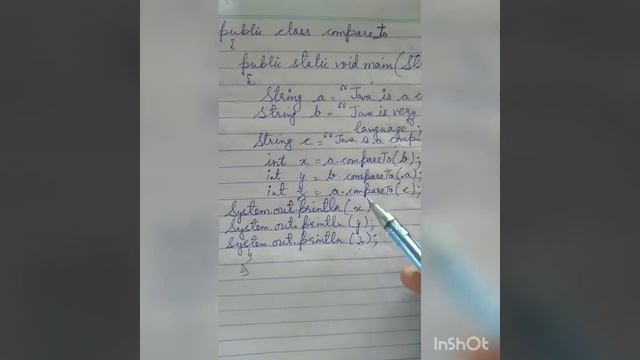 public class compare_to
{
public static void main(St
{
String a = "Java is a c
String b = "Java is very
language;
String c = "Java is a comp
int x = a.compareTo(b);
int y = b.compareTo(a);
int z = a.compareTo(c);
System.out.println(x)
System.out.println(y);
System.out.println(z);
}
}
InShOt